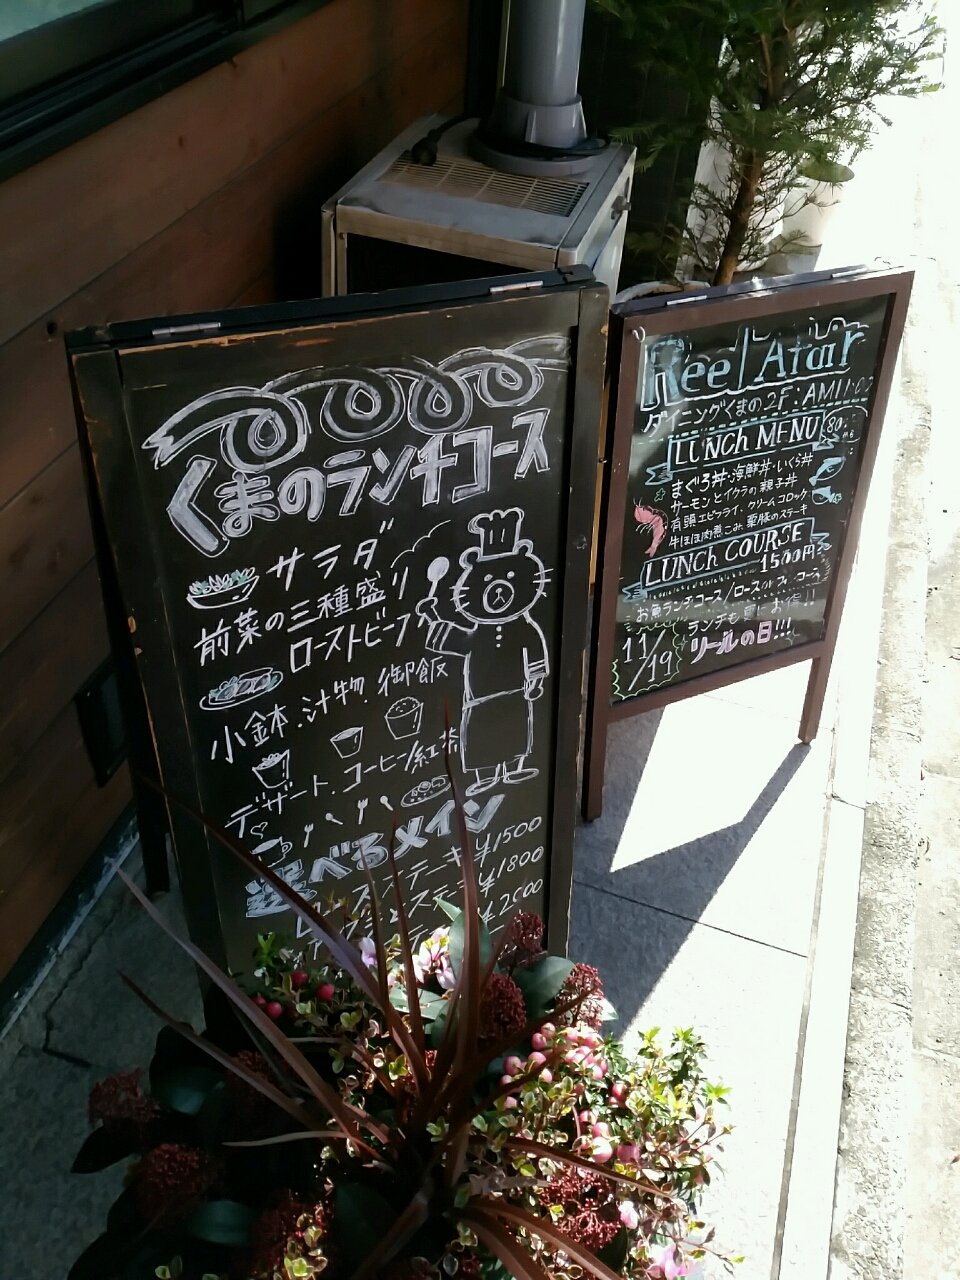 くまのランチコース
サラダ
前菜の三種盛り
ローストビーフ
小鉢.汁物.御飯
デザート.コーヒー/紅茶
選べるメイン
ステーキ ¥1500
ステーキ ¥1800
¥2000
Reel Afair
ダイニングくまの2F:AM11:02
LUNCh MENU
まぐろ丼・海鮮丼・いくら丼
サーモンとイクラの親子丼
有頭エビフライ、クリームコロッケ
牛ほほ肉煮こみ、栗豚のステーキ
LUNCh COURSE
1500円
お魚ランチコース/ロース
ランチも更にお得!!
11/19 リールの日!!!